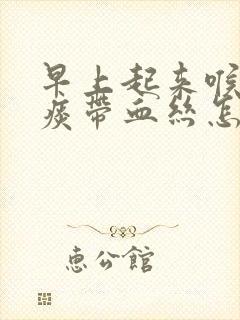 早上起来喉
痰带血丝怎
惠公館